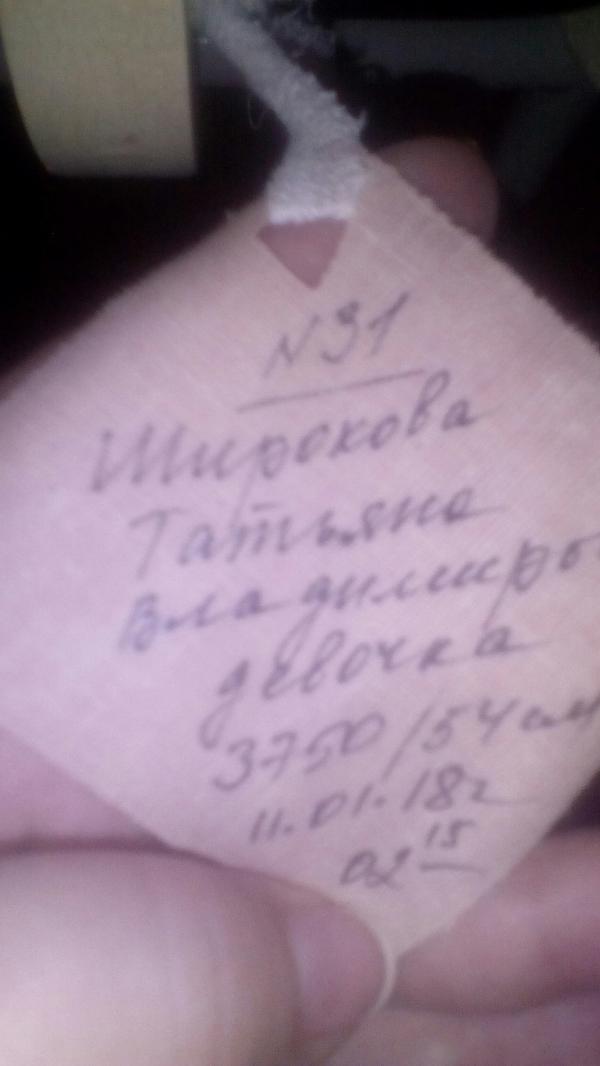 N31
Широкова
Татьяна
Владимиро
девочка
3750/54 см
11.01.18г
02 15